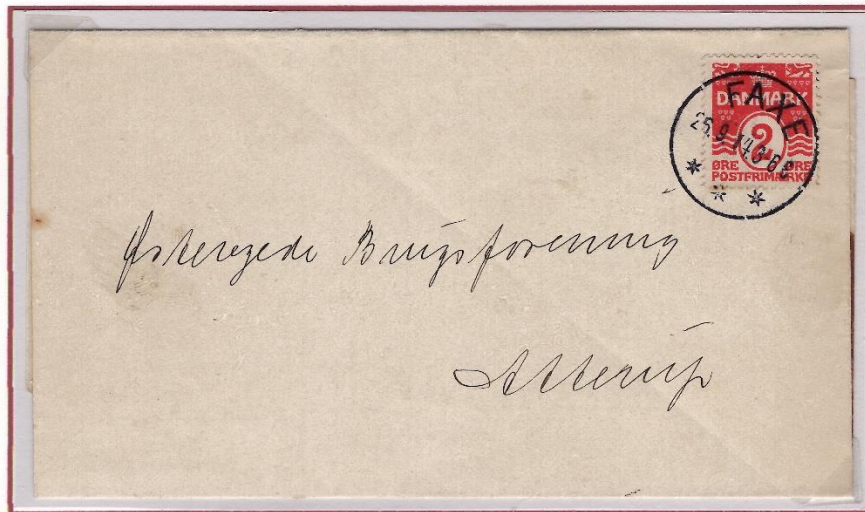 DANMARK
2
ØRE ØRE
POSTFRIMÆRKE
FAXE
25.9.14.
Østeregede Brugsforening
Atterup